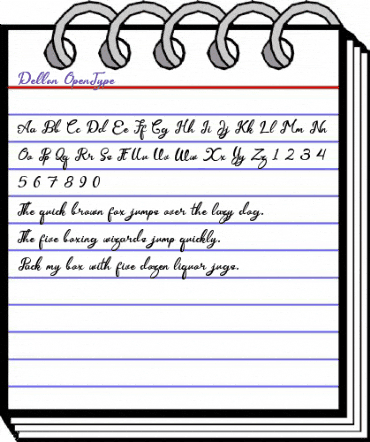 Dellon OpenType
Aa Bb Cc Dd Ee Ff Gg Hh Ii Jj Kk Ll Mm Nn
Oo Pp Qq Rr Ss Tt Uu Vv Ww Xx Yy Zz 1 2 3 4
5 6 7 8 9 0
The quick brown fox jumps over the lazy dog.
The five boxing wizards jump quickly.
Pack my box with five dozen liquor jugs.